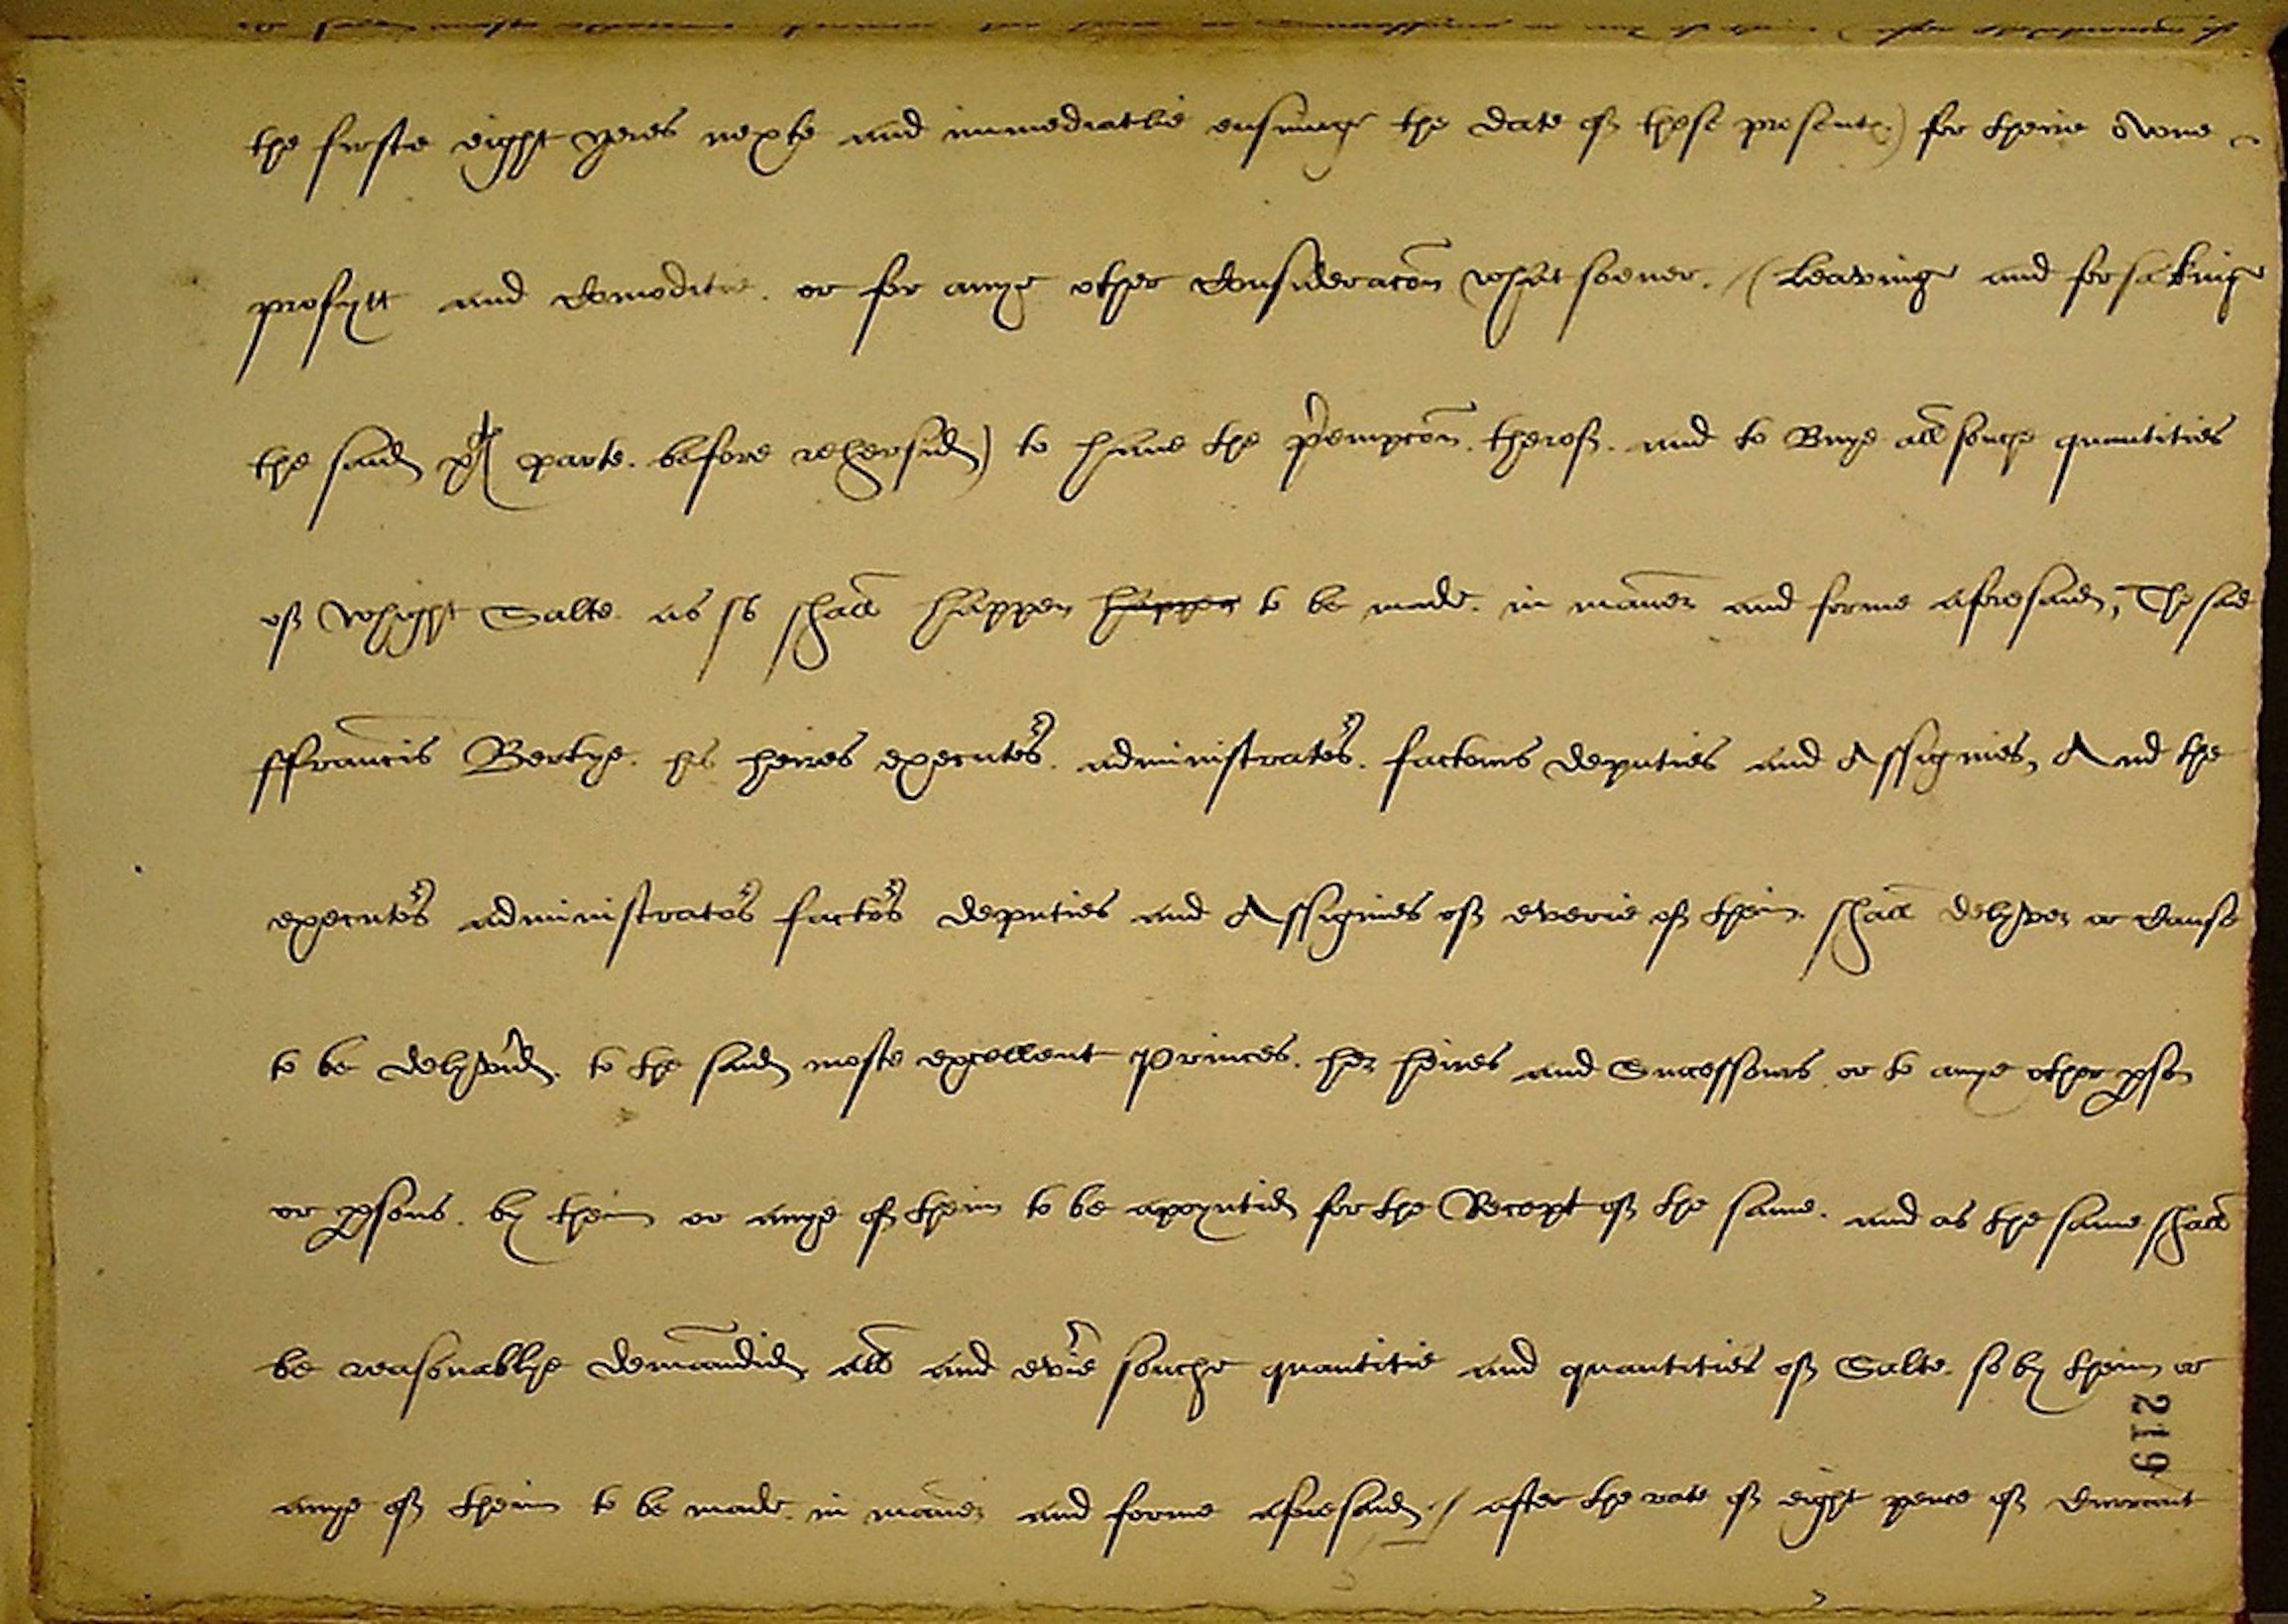 the firste eight yeres nexte and immediatlie ensuinge the date of these presentes) for theire owne
profytt and comoditie. or for anye other consideracōn whatsoever. /(Leaving and forsaking
the said xxᵗʰ parte. before rehersid) to have the p̄empcōn. therof. and to Buye all souche quantities
of whight Salte as so shall happen happen to be made. in maner and forme aforesaid, The said
ffrancis Bertye. his heires executoʳs. administratoʳs. factours deputies and Assignies, And the
executoʳs administratoʳs factoʳs deputies and Assignies of everie of theim. shall delyver or cause
to be delyv'id. to the said moste excellent Princes. her heires and Successours or to anye other pson
or psons. by theim or anye of theim to be apoyntid for the Recept of the same. and as the same shall
be reasonablye demandid all and ev'ie souche quantitie and quantities of Salte. so by theim or
anye of theim to be made. in maner and forme aforesaid. / after the rate of eight pence of Currant
219